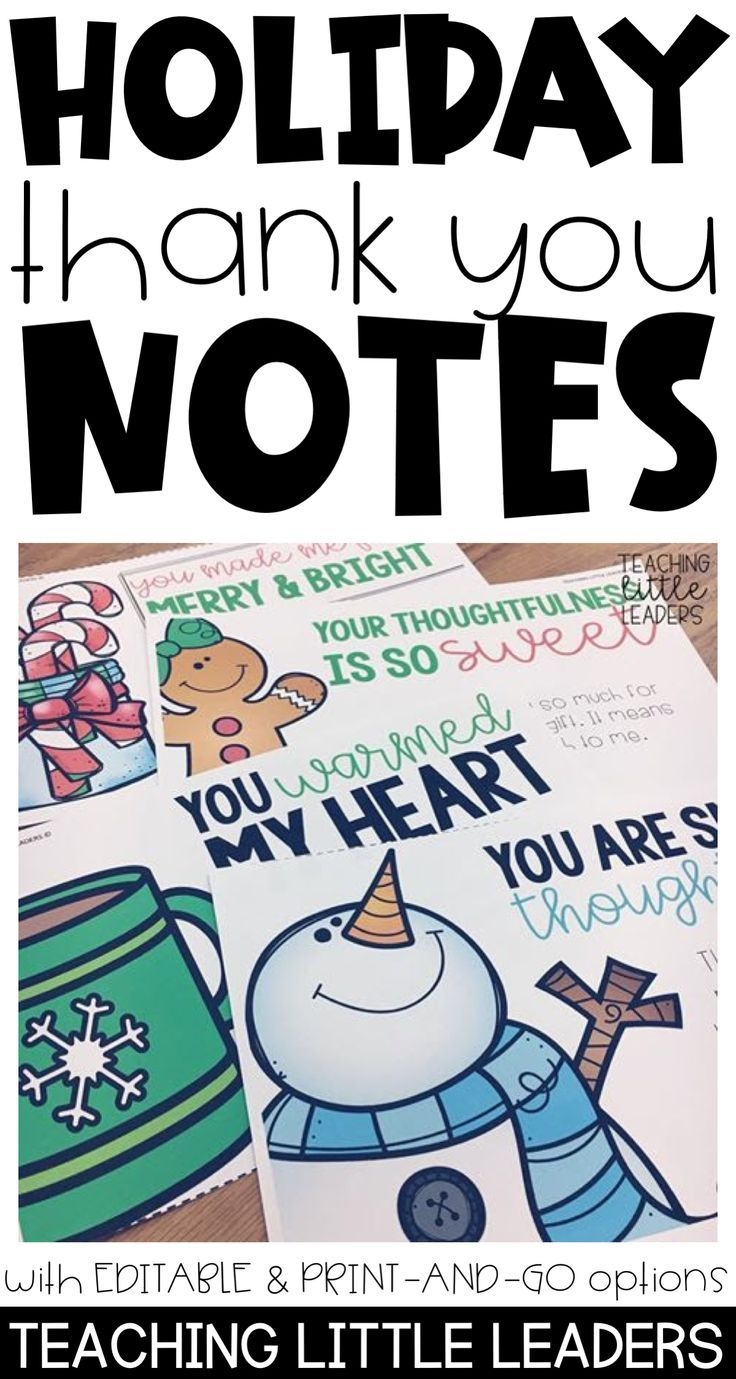 HOLIDAY
thank you
NOTES
you made me
MERRY & BRIGHT
TEACHING
little
LEADERS
YOUR THOUGHTFULNES
IS SO sweet
so much for
gift. It means
to me.
YOU warmed
MY HEART
YOU ARE
with EDITABLE & PRINT-AND-GO options
TEACHING LITTLE LEADERS